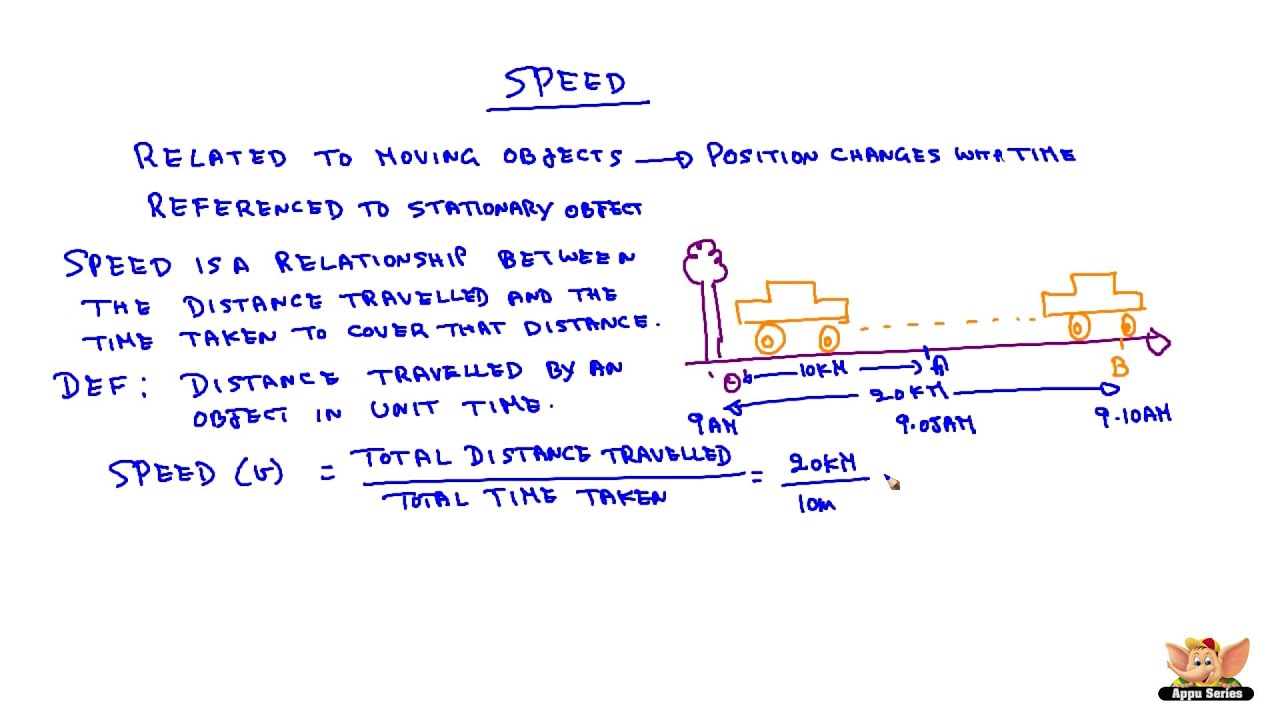 SPEED
RELATED TO MOVING OBJECTS → POSITION CHANGES WITH TIME
REFERENCED TO STATIONARY OBJECT
SPEED IS A RELATIONSHIP BETWEEN
THE DISTANCE TRAVELLED AND THE
TIME TAKEN TO COVER THAT DISTANCE.
DEF: DISTANCE TRAVELLED BY AN
OBJECT IN UNIT TIME.
10KM A B
20KM
9AM 9.05AM 9.10AM
SPEED (v) = TOTAL DISTANCE TRAVELLED / TOTAL TIME TAKEN = 20KM / 10m
Appu Series